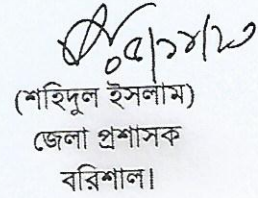 (শহিদুল ইসলাম)
জেলা প্রশাসক
বরিশাল।